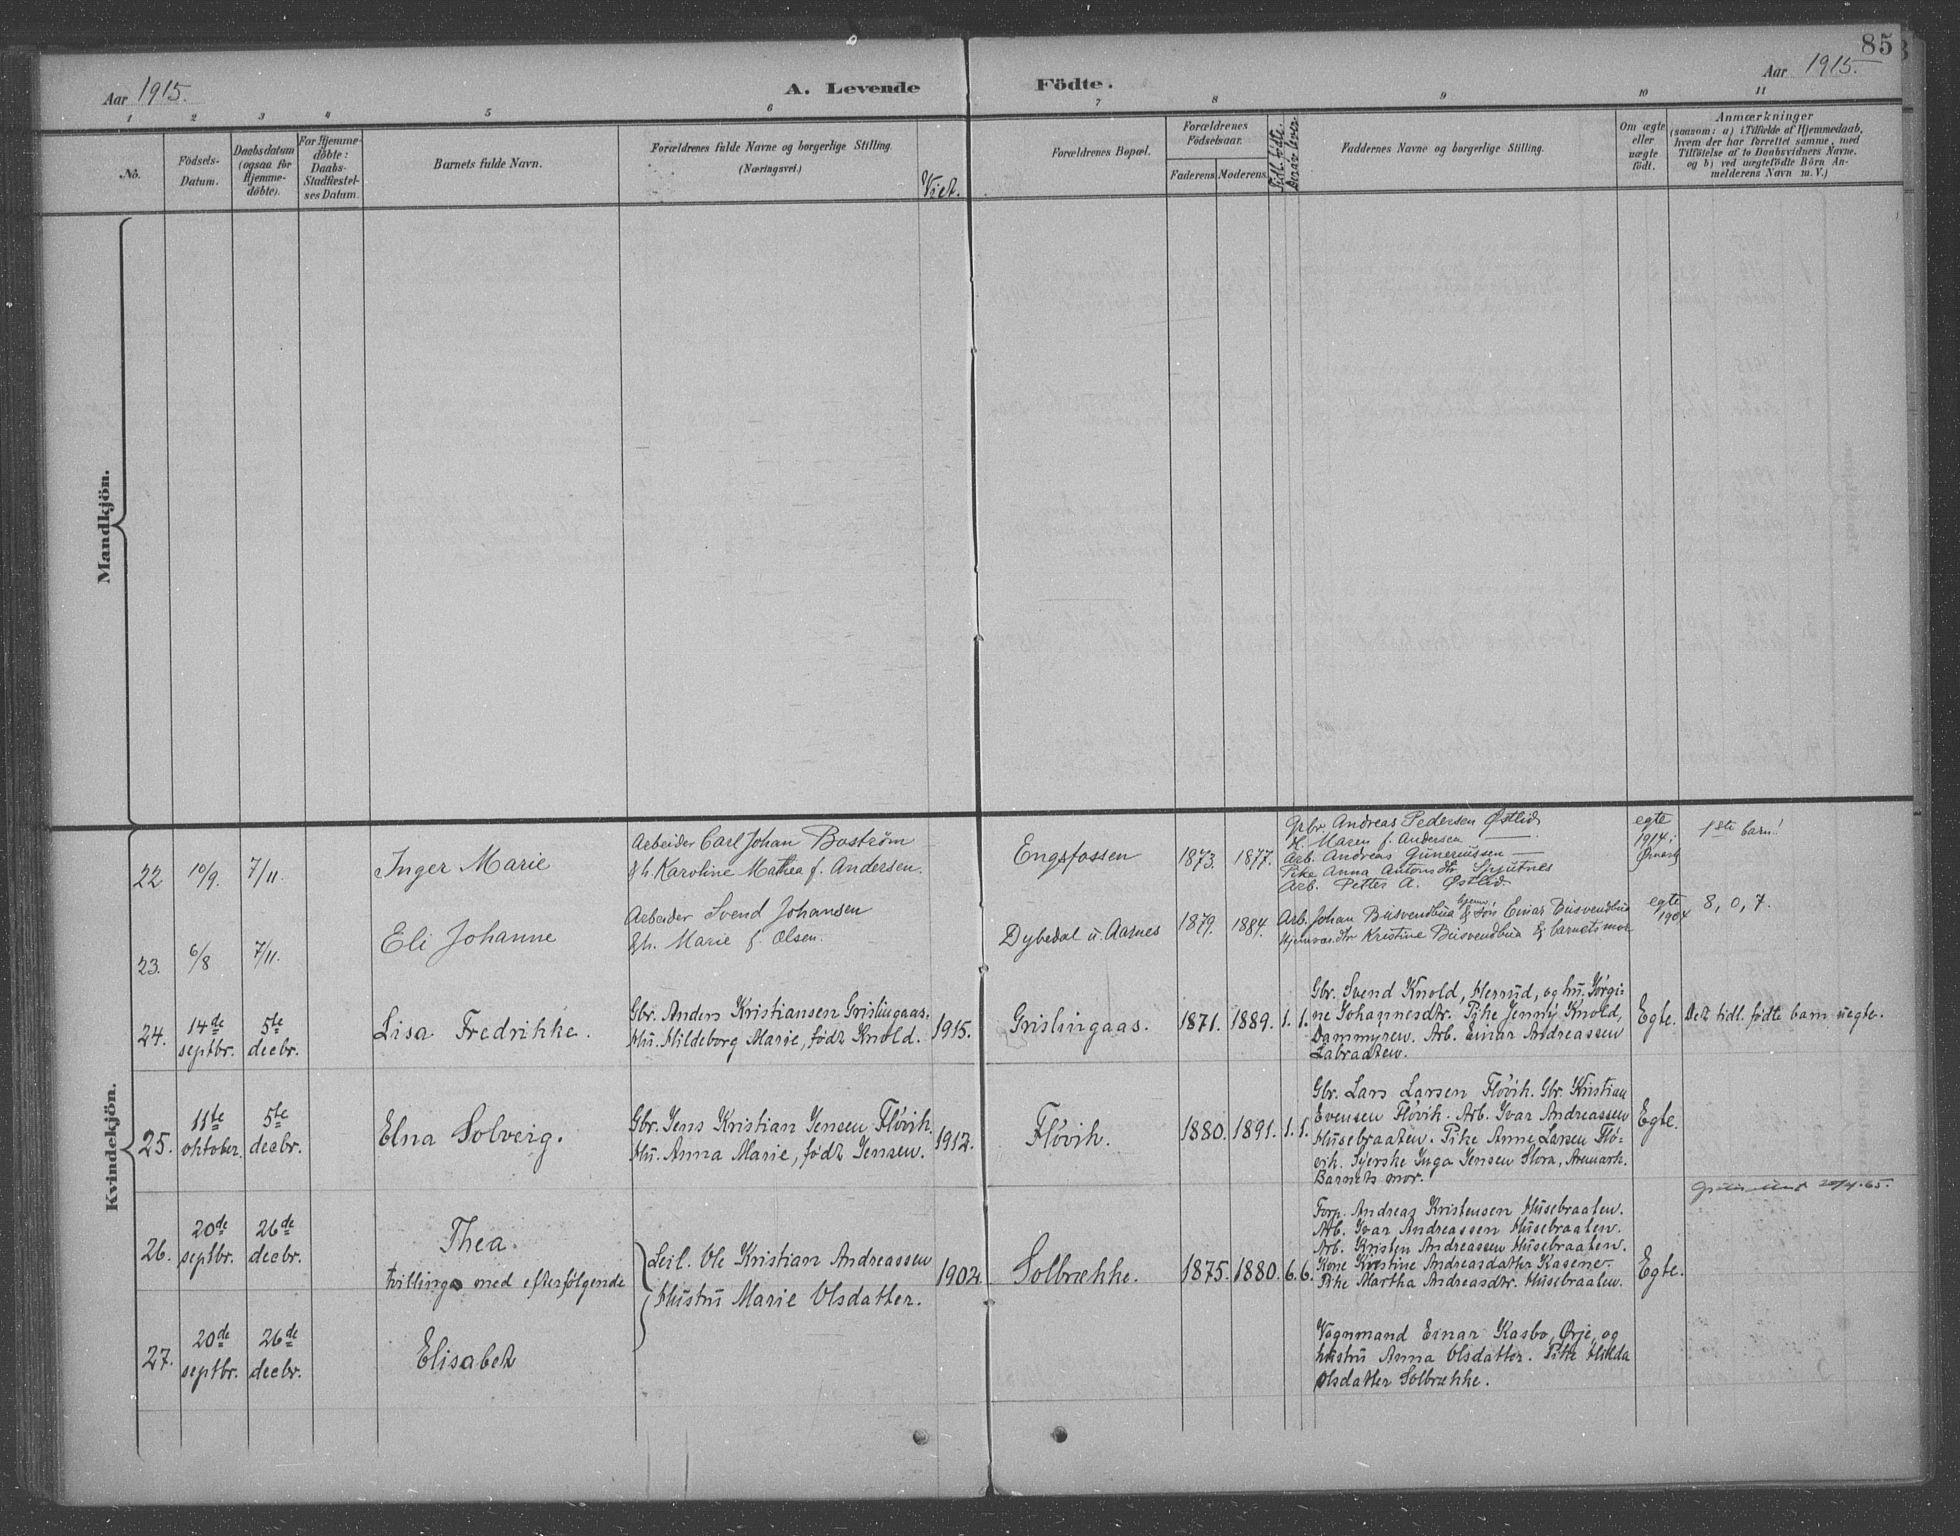 85
Aar 1915.
A. Levende Födte.
Aar 1915.
1 2 3 4 5 6 7 8 9 10 11
No.
Födsels-Datum.
Daabsdatum (ogsaa for Hjemme-döbte).
For Hjemme-döbte: Daabs-Stadfæstel-ses Datum.
Barnets fulde Navn.
Forældrenes fulde Navne og borgerlige Stilling.
(Næringsvei.)
Viet.
Forældrenes Bopæl.
Forældrenes Födselsaar.
Faderens Moderens
Tidl. födte.
Derav lever
Faddernes Navne og borgerlige Stilling.
Om ægte eller uægte födt.
Anmærkninger
(saasom: a) i Tilfælde af Hjemmedaab,
hvem der har forrettet samme, med
Tilföielse af to Daabsvidners Navne.
og b) ved uægtefödte Börn An-
melderens Navn m. V.)
Mandkjön.
Kvindekjön.
22 10/9. 7/11.
Inger Marie
Arbeider Carl Johan Boström
& h. Karoline Mathea f. Andersen.
Engsfossen
1873. 1877.
Gbr. Andreas Pedersen Østlid
H. Maren f. Andersen —
Arb. Andreas Guneriussen —
Pike Anna Antonsdtr.
Arb. Petter A. Østlid
egte
1914 i
1ste barn!
23. 6/8 7/11.
Eli Johanne
Arbeider Svend Johansen
& h. Marie f. Olsen.
Dybedal u. Aarnes
1879. 1884.
Arb. Johan Busvendbua & søn Einar Busvendbua
Kristine Busvendbua & barnets mor
egte
1904
8, 0, 7.
24. 14de septbr. 5te decbr.
Lisa Fredrikke.
Gbr. Anders Kristiansen Grislingaas.
Hu. Hildeborg Marie, født Knold.
1915.
Grislingaas.
1871. 1889. 1. 1.
Gbr. Svend Knold, Herud, og hu. Jørgi-
ne Johannesdtr. Pike Jenny Knold,
Dammyren. Arb. Einar Andreassen
Labraaten.
Egte.
Det tidl. fødte barn uegte.
25. 11te oktober. 5te decbr.
Elna Solveig.
Gbr. Jens Kristian Jensen Fløvik.
Hu. Anna Marie, født Jensen.
1912.
Fløvik.
1880. 1891. 1. 1.
Gbr. Lars Larsen Fløvik. Gbr. Kristian
Evensen Fløvik. Arb. Ivar Andreassen
Husebraaten. Pike Anne Larsen Flø-
vik. Syerske Inga Jensen Slora, Aremark.
Barnets mor.
Egte.
20/4.65.
26. 20de septbr. 26de decbr.
Thea.
tvilling med efterfølgende
Leil. Ole Kristian Andreassen
Hustru Marie Olsdatter.
1902
Solbrække.
1875. 1880. 6. 6.
Forp. Andreas Kristensen Husebraaten.
Arb. Ivar Andreassen Husebraaten.
Arb. Kristen Andreassen Husebraaten.
Kone Kristine Andreasdatter Kasene.
Pike Martha Andreasdtr. Husebraaten.
Egte.
27. 20de septbr. 26de decbr.
Elisabet
Vognmand Einar Kasbo, Ørje, og
hustru Anna Olsdatter. Pike Hilda
Olsdatter Solbrække.